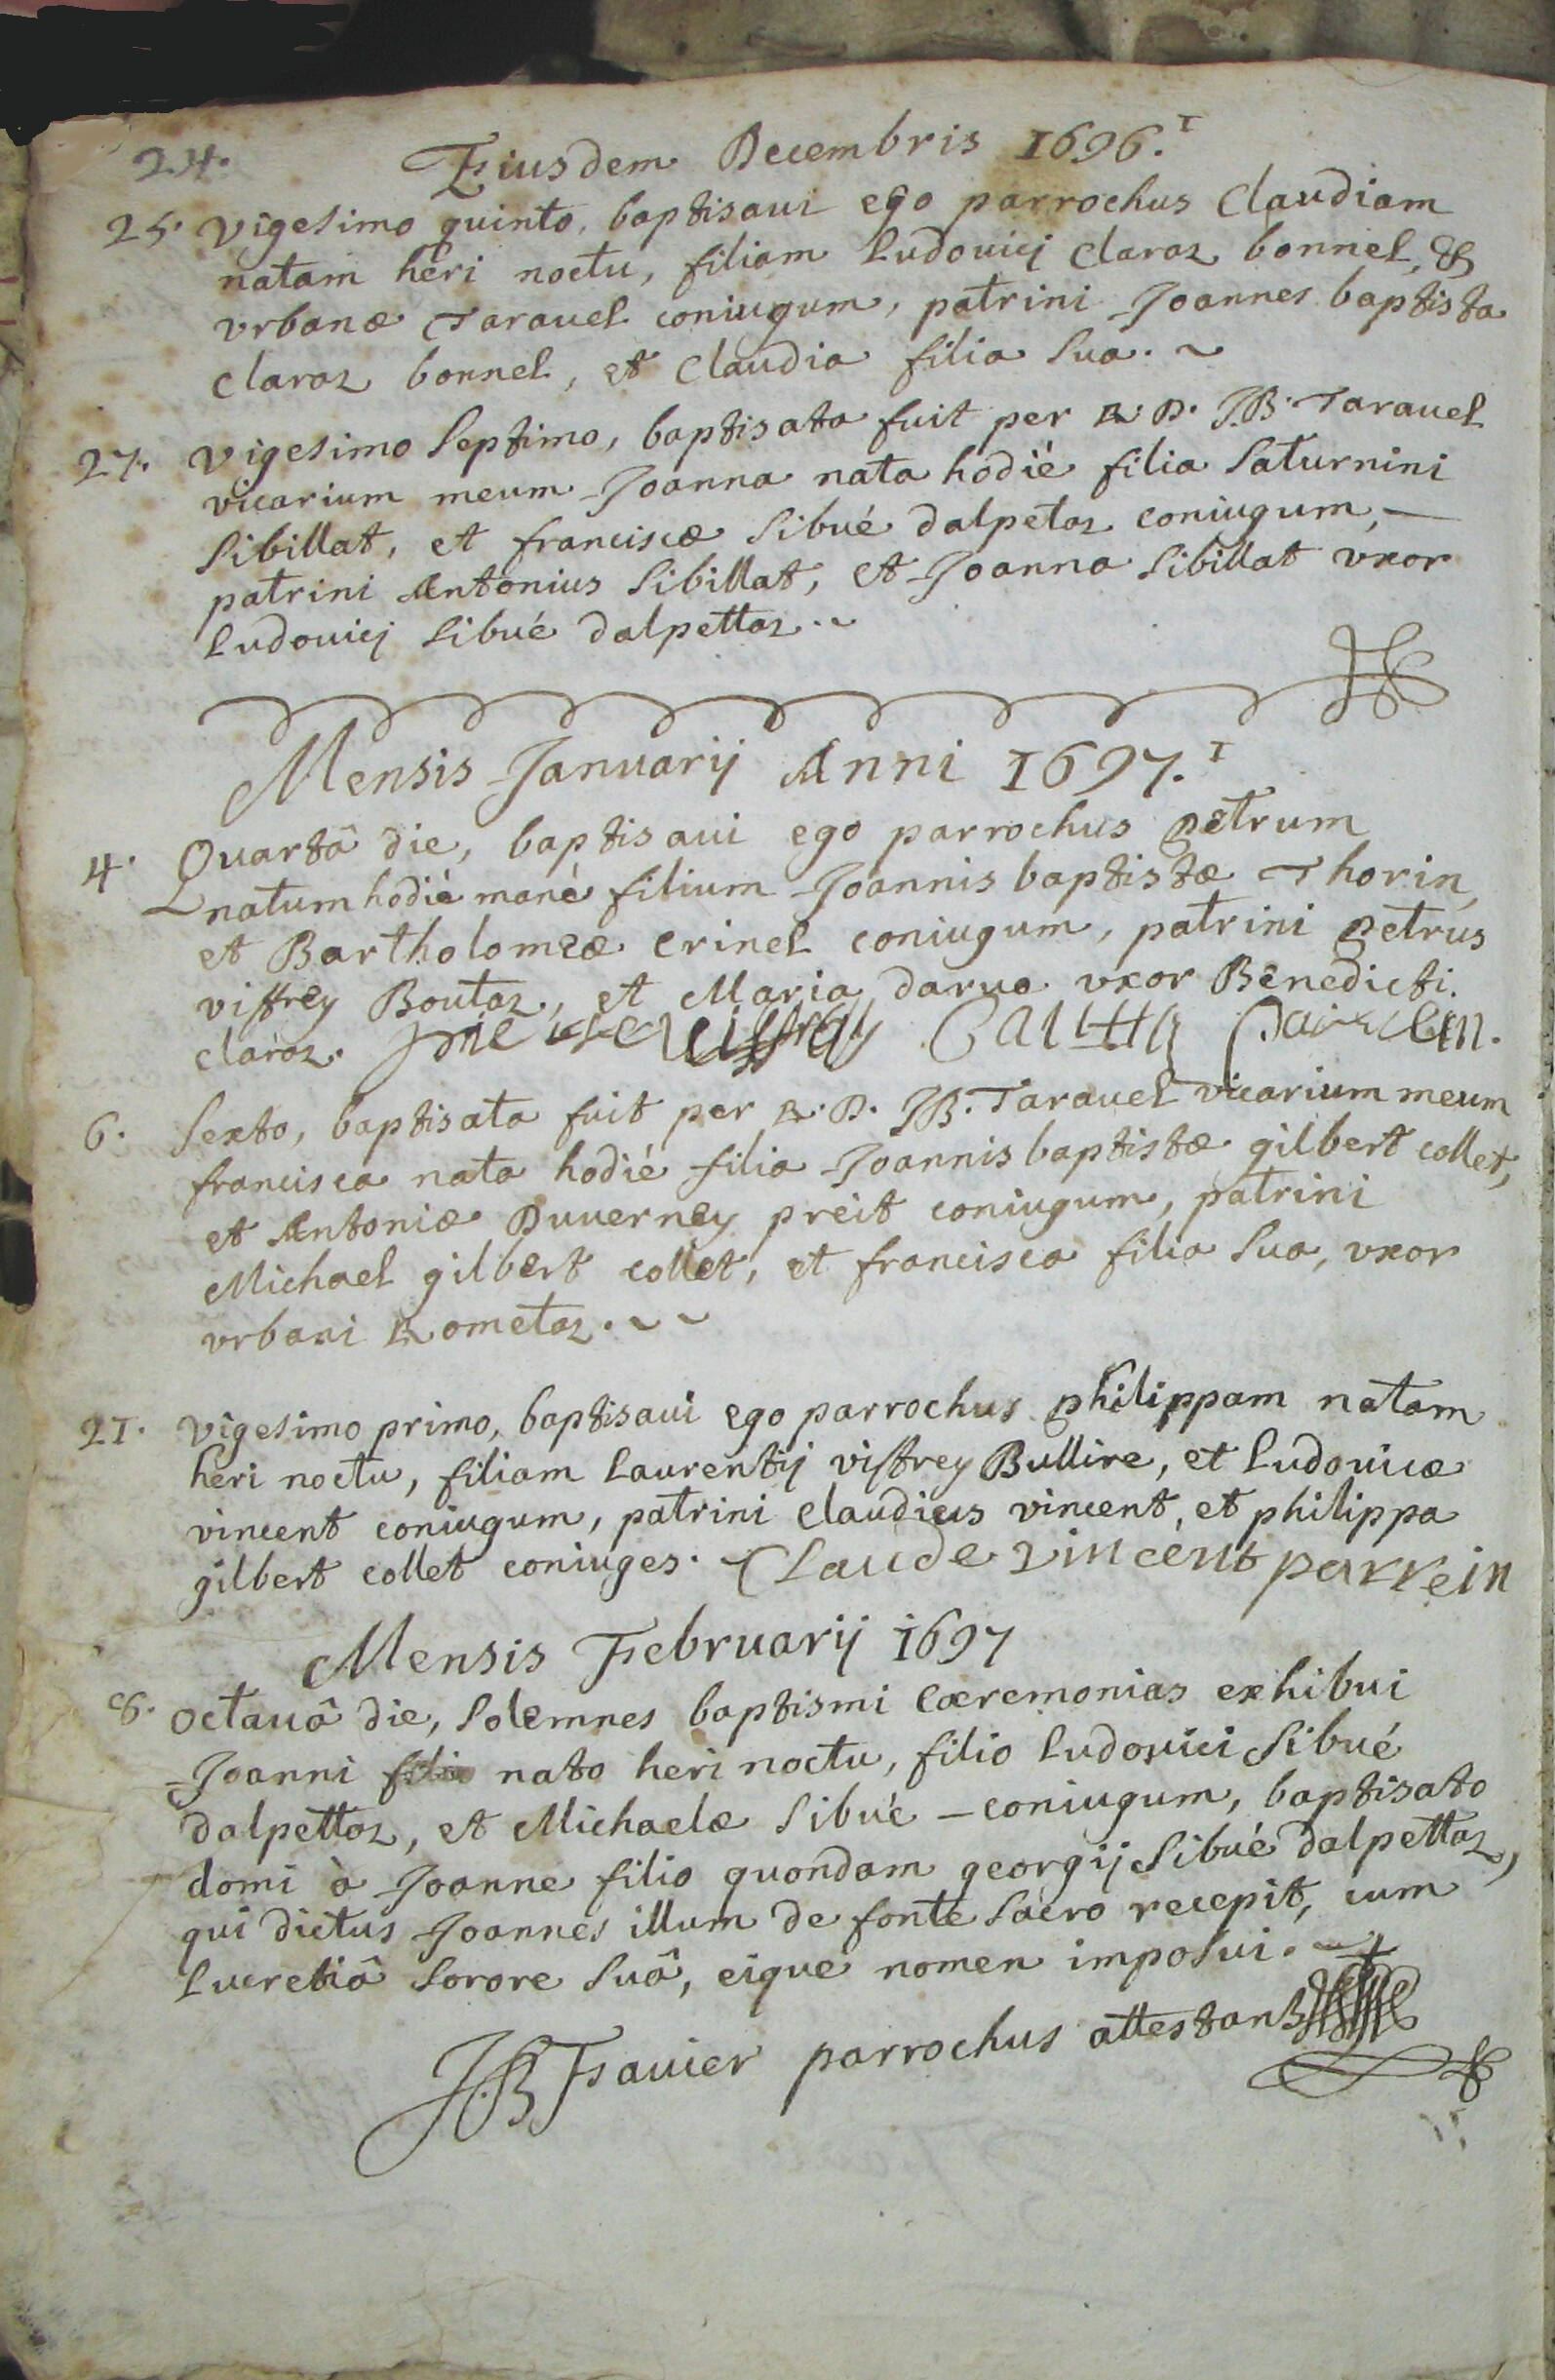 24.
Eiusdem Decembris 1696.
25. vigesimo quinto, baptisaui ego parrochus Claudiam
natam heri noctu, filiam Ludouicj Claraz bonnel, &
vrbanæ Tarauel coniugum, patrini Joannes baptista
Claraz bonnel, et Claudia filia sua. ~
27. vigesimo septimo, baptisata fuit per R. D. J.B. Tarauel
vicarium meum Joanna nata hodié filia saturnini
sibillat, et franciscæ sibué dalpetaz coniugum, —
patrini Antonius sibillat, et Joanna sibillat vxor
Ludouicj sibué dalpettaz. ~
Mensis Januarij Anni 1697.
4. Quartâ die, baptisaui ego parrochus petrum
natum hodié mané filium Joannis baptistæ Thorin,
et Bartholomeæ crinel coniugum, patrini petrus
viffrey Boutaz, et Maria darua vxor Benedicti
claraz.
6. sexto, baptisata fuit per R. D. J.B. Tarauel vicarium meum
francisca nata hodié filia Joannis baptistæ gilbert collet,
et Antoniæ Duuerney preit coniugum, patrini
Michael gilbert collet, et francisca filia sua, vxor
vrbani Rometaz. ~ ~
21. vigesimo primo, baptisaui ego parrochus philippam natam
heri noctu, filiam Laurentij viffrey Bullire, et Ludouicæ
vincent coniugum, patrini claudius vincent, et philippa
gilbert collet coniuges. Claude vincent parrein
Mensis Februarij 1697
8. octauâ die, solemnes baptismi cæremonias exhibui
Joanni nato heri noctu, filio Ludouici sibué
dalpettaz, et Michaelæ sibué — coniugum, baptisato
domi à Joanne filio quondam georgij sibué dalpettaz,
qui dictus Joannes illum de fonte sacro recepit, cum
Lucretiâ sorore suâ, eique nomen imposui.
J.B Fauier parrochus attestans